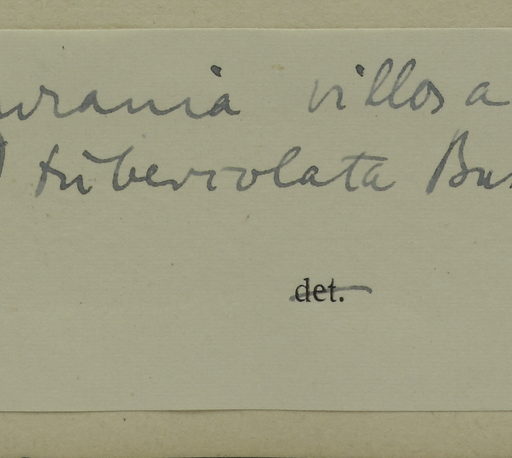 urania villosa
tuberculata Bus
det.